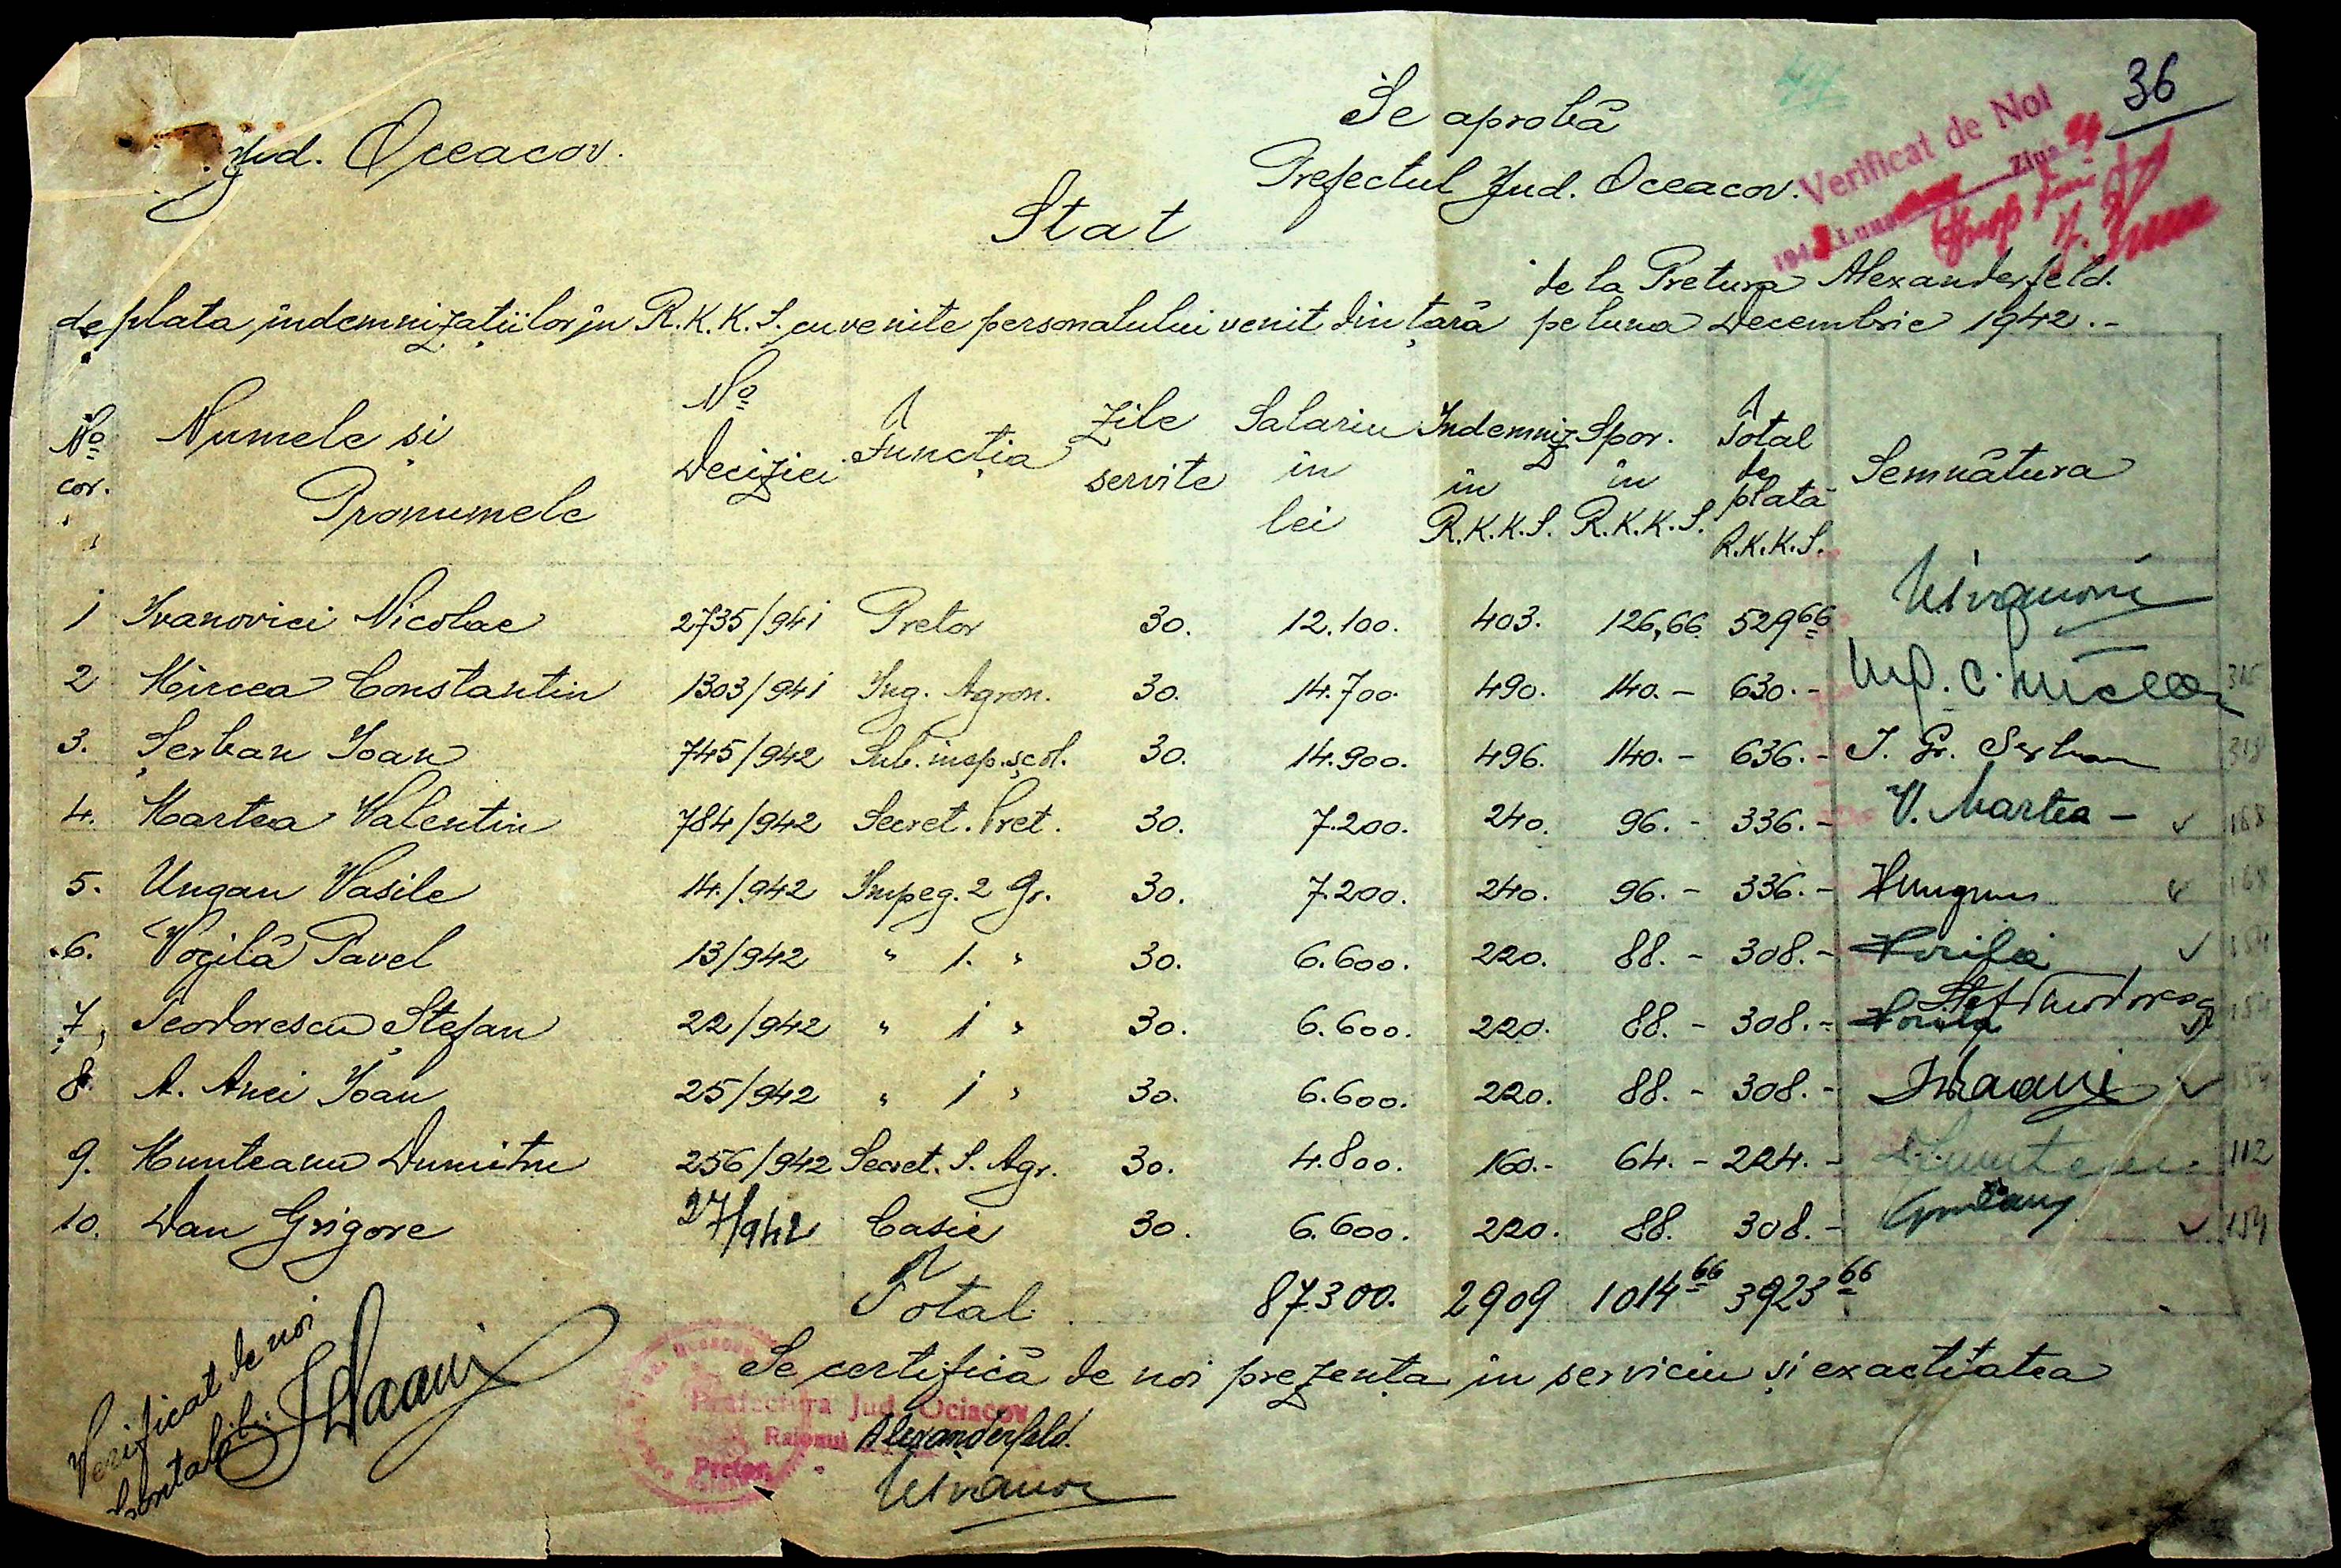 36
Jud. Oceacov.
Se aprobă
Prefectul Jud. Oceacov.
Verificat de Noi
194 Luna Ziua
Stat
de la Pretura Alexanderfeld.
de plata indemnizațiilor în R.K.K.S. cuvenite personalului venit din țară pe luna Decembrie 1942.-
No cor. Numele și Pronumele No Deciziei Funcția Zile servite Salariu în lei Indemniz în R.K.K.S. Spor. în R.K.K.S. Total de plată R.K.K.S. Semnătura
1 Ivanovici Nicolae 2735/941 Pretor 30. 12.100. 403. 126,66 529 66
2 Mircea Constantin 1303/941 Ing. Agron. 30. 14.700. 490. 140.- 630.-
3. Șerban Ioan 745/942 Sub. insp. școl. 30. 14.900. 496. 140.- 636.- I. Gr. Serban
4. Martea Valentin 784/942 Secret. Pret. 30. 7.200. 240. 96.- 336.- V. Martea - 168
5. Ungan Vasile 14./942 Impeg. 2 Gr. 30. 7.200. 240. 96.- 336.- 168
6. Vogilă Pavel 13/942 " 1. " 30. 6.600. 220. 88.- 308.- 154
7. Teodorescu Ștefan 22/942 " 1 " 30. 6.600. 220. 88.- 308.- Stef Theodorescu 154
8. A. Anei Ioan 25/942 " 1 " 30. 6.600. 220. 88.- 308.- 154
9. Munteanu Dumitru 256/942 Secret. S. Agr. 30. 4.800. 160.- 64.- 224.- 112
10. Dan Grigore 27/942 Casie 30. 6.600. 220. 88. 308.- 154
Total 87.300. 2909 1014 66 3923 66
Se certifică de noi prezența în serviciu și exactitatea
Verificat de noi
Contabil:
Prefectura Jud. Ociacov
Raionul Alexanderfeld.
Pretor